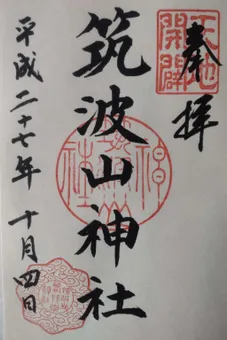 奉拝
天地開闢
筑波山神社
平成二十七年十月四日